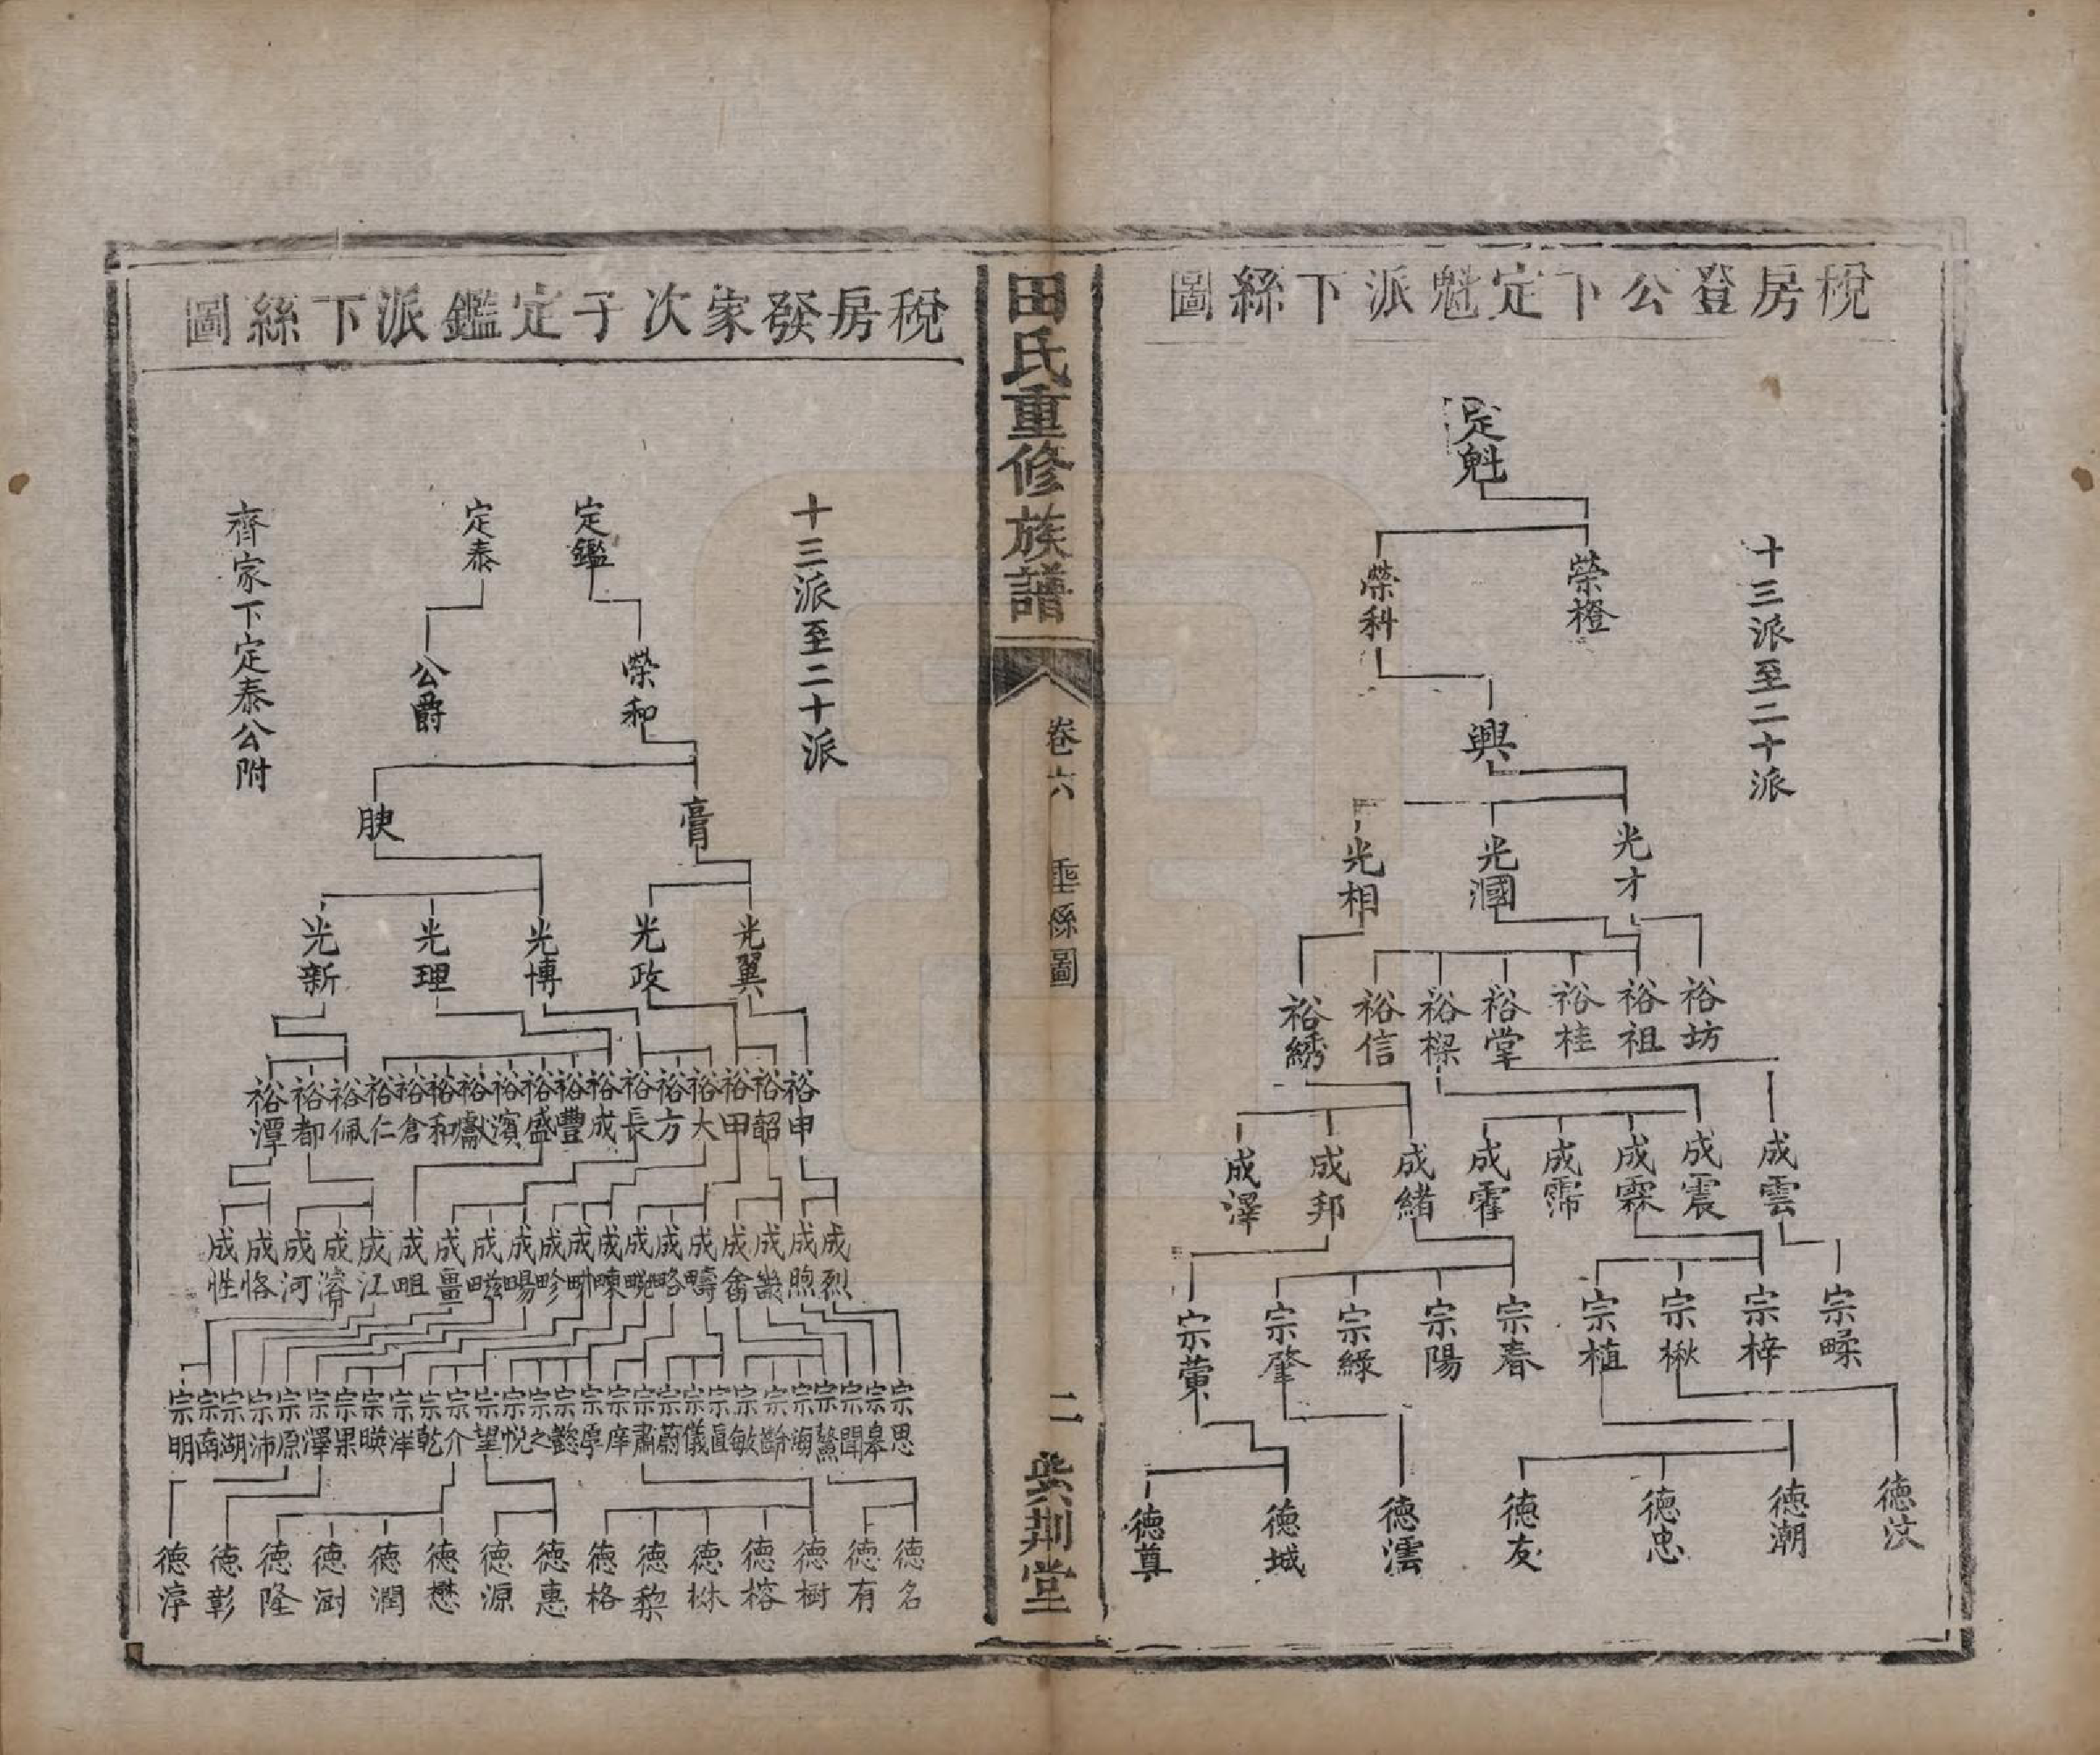 稅房登公下定魁派下絲圖
十三派至二十派
定魁
榮橙 榮科
興
光才 光漍 光相
裕坊 裕祖 裕桂 裕堂 裕樑 裕信 裕綉
成雲 成震 成霖 成霈 成霍 成緒 成邦 成澤
宗畴 宗梓 宗楸 宗植 宗春 宗陽 宗綠 宗肇 宗蕫
德汶 德潮 德忠 德友 德澐 德城 德尊
田氏重修族譜
卷六 垂絲圖
二 紫荆堂
稅房發家次子定鑑派下絲圖
十三派至二十派
定鑑 定泰
齊家下定泰公附
榮和 公爵
膏 腴
光翼 光政 光博 光理 光新
裕申 裕韶 裕甲 裕大 裕方 裕長 裕成 裕豐 裕盛 裕濱 裕獻 裕和 裕倉 裕仁 裕佩 裕都 裕潭
成烈 成煦 成嵗 成畬 成疇 成略 成畹 成暕 成畊 成畛 成暘 成畷 成畺 成畦 成江 成濬 成河 成恪 成性
宗思 宗皋 宗聞 宗鰲 宗海 宗齡 宗敏 宗直 宗儀 宗蔚 宗肅 宗庠 宗厚 宗懿 宗之 宗悅 宗望 宗介 宗乾 宗洋 宗暎 宗果 宗澤 宗原 宗沛 宗湖 宗南 宗明
德名 德有 德樹 德榕 德株 德黎 德格 德惠 德源 德懋 德潤 德澍 德隆 德彰 德淳